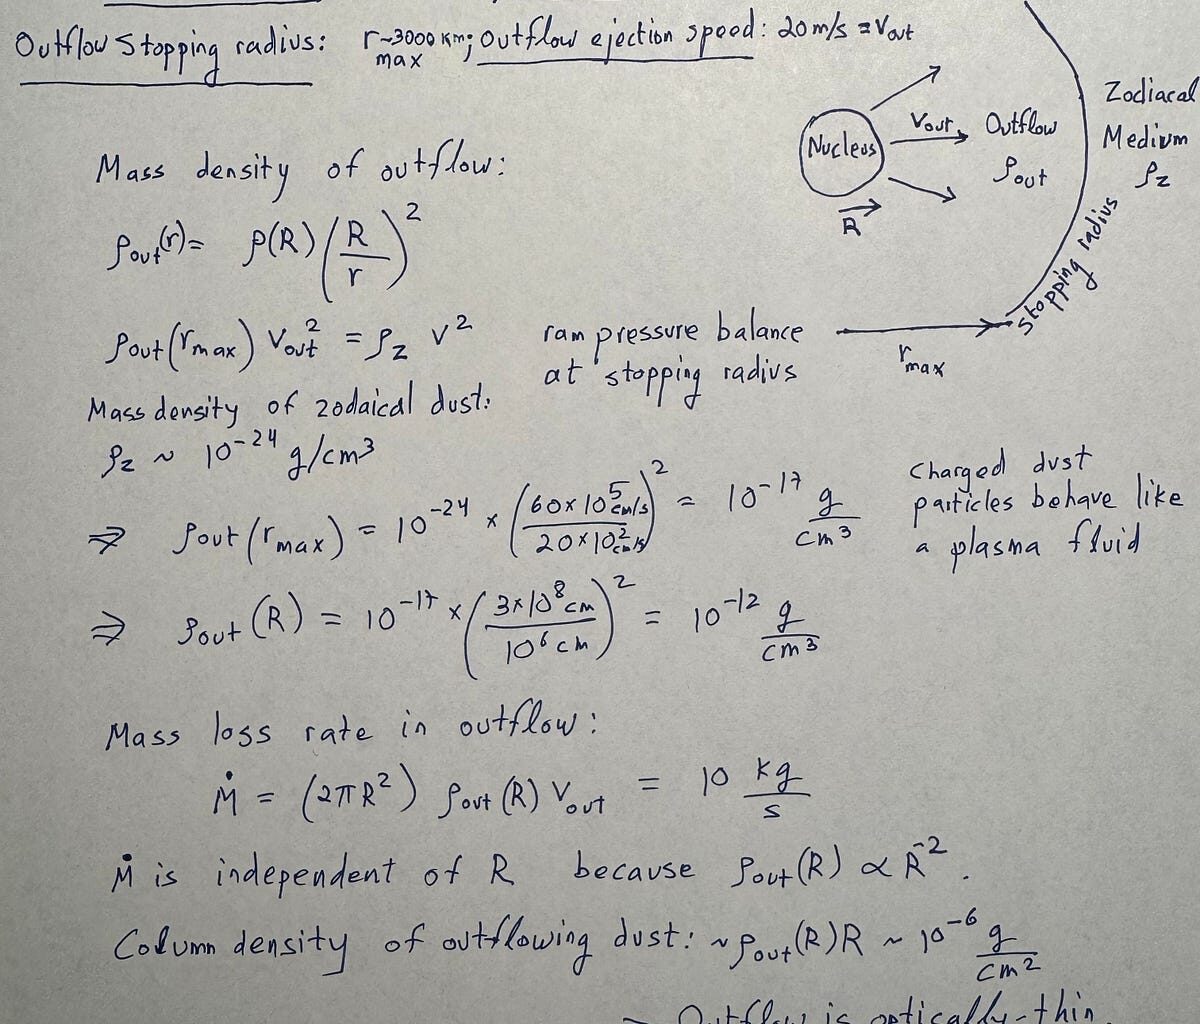 Outflow Stopping radius: r_max ~3000 km; Outflow ejection speed: 20 m/s = V_out
Nucleus
V_out
Outflow
ρ_out
Zodiacal
Medium
ρ_z
R
Stopping radius
r_max
Mass density of outflow:
ρ_out(r) = ρ(R) (R/r)^2
ρ_out(r_max) V_out^2 = ρ_z V^2
ram pressure balance
at stopping radius
Mass density of zodaical dust:
ρ_z ~ 10^-24 g/cm^3
⇒ ρ_out(r_max) = 10^-24 × (60×10^5 cm/s / 20×10^2 cm/s)^2 = 10^-17 g/cm^3
Charged dust
particles behave like
a plasma fluid
⇒ ρ_out(R) = 10^-17 × (3×10^8 cm / 10^6 cm)^2 = 10^-12 g/cm^3
Mass loss rate in outflow:
Ṁ = (2πR^2) ρ_out(R) V_out = 10 kg/s
Ṁ is independent of R because ρ_out(R) ∝ R^-2.
Column density of outflowing dust: ~ρ_out(R)R ~ 10^-6 g/cm^2
Outflow is optically-thin